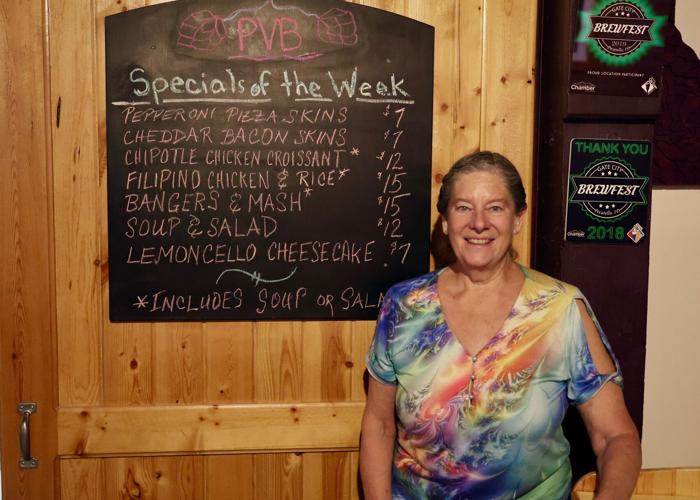 PVB
Specials of the Week
PEPPERONI PIZZA SKINS $7
CHEDDAR BACON SKINS $7
CHIPOTLE CHICKEN CROISSANT* $12
FILIPINO CHICKEN & RICE* $15
BANGERS & MASH* $15
SOUP & SALAD $12
LEMONCELLO CHEESECAKE $7
*INCLUDES SOUP OR SALA
GATE CITY
BREWFEST
2019
Pocatello, Idaho
PROUD LOCATION PARTICIPANT
Chamber
THANK YOU
GATE CITY
BREWFEST
Pocatello, Idaho
Chamber
2018